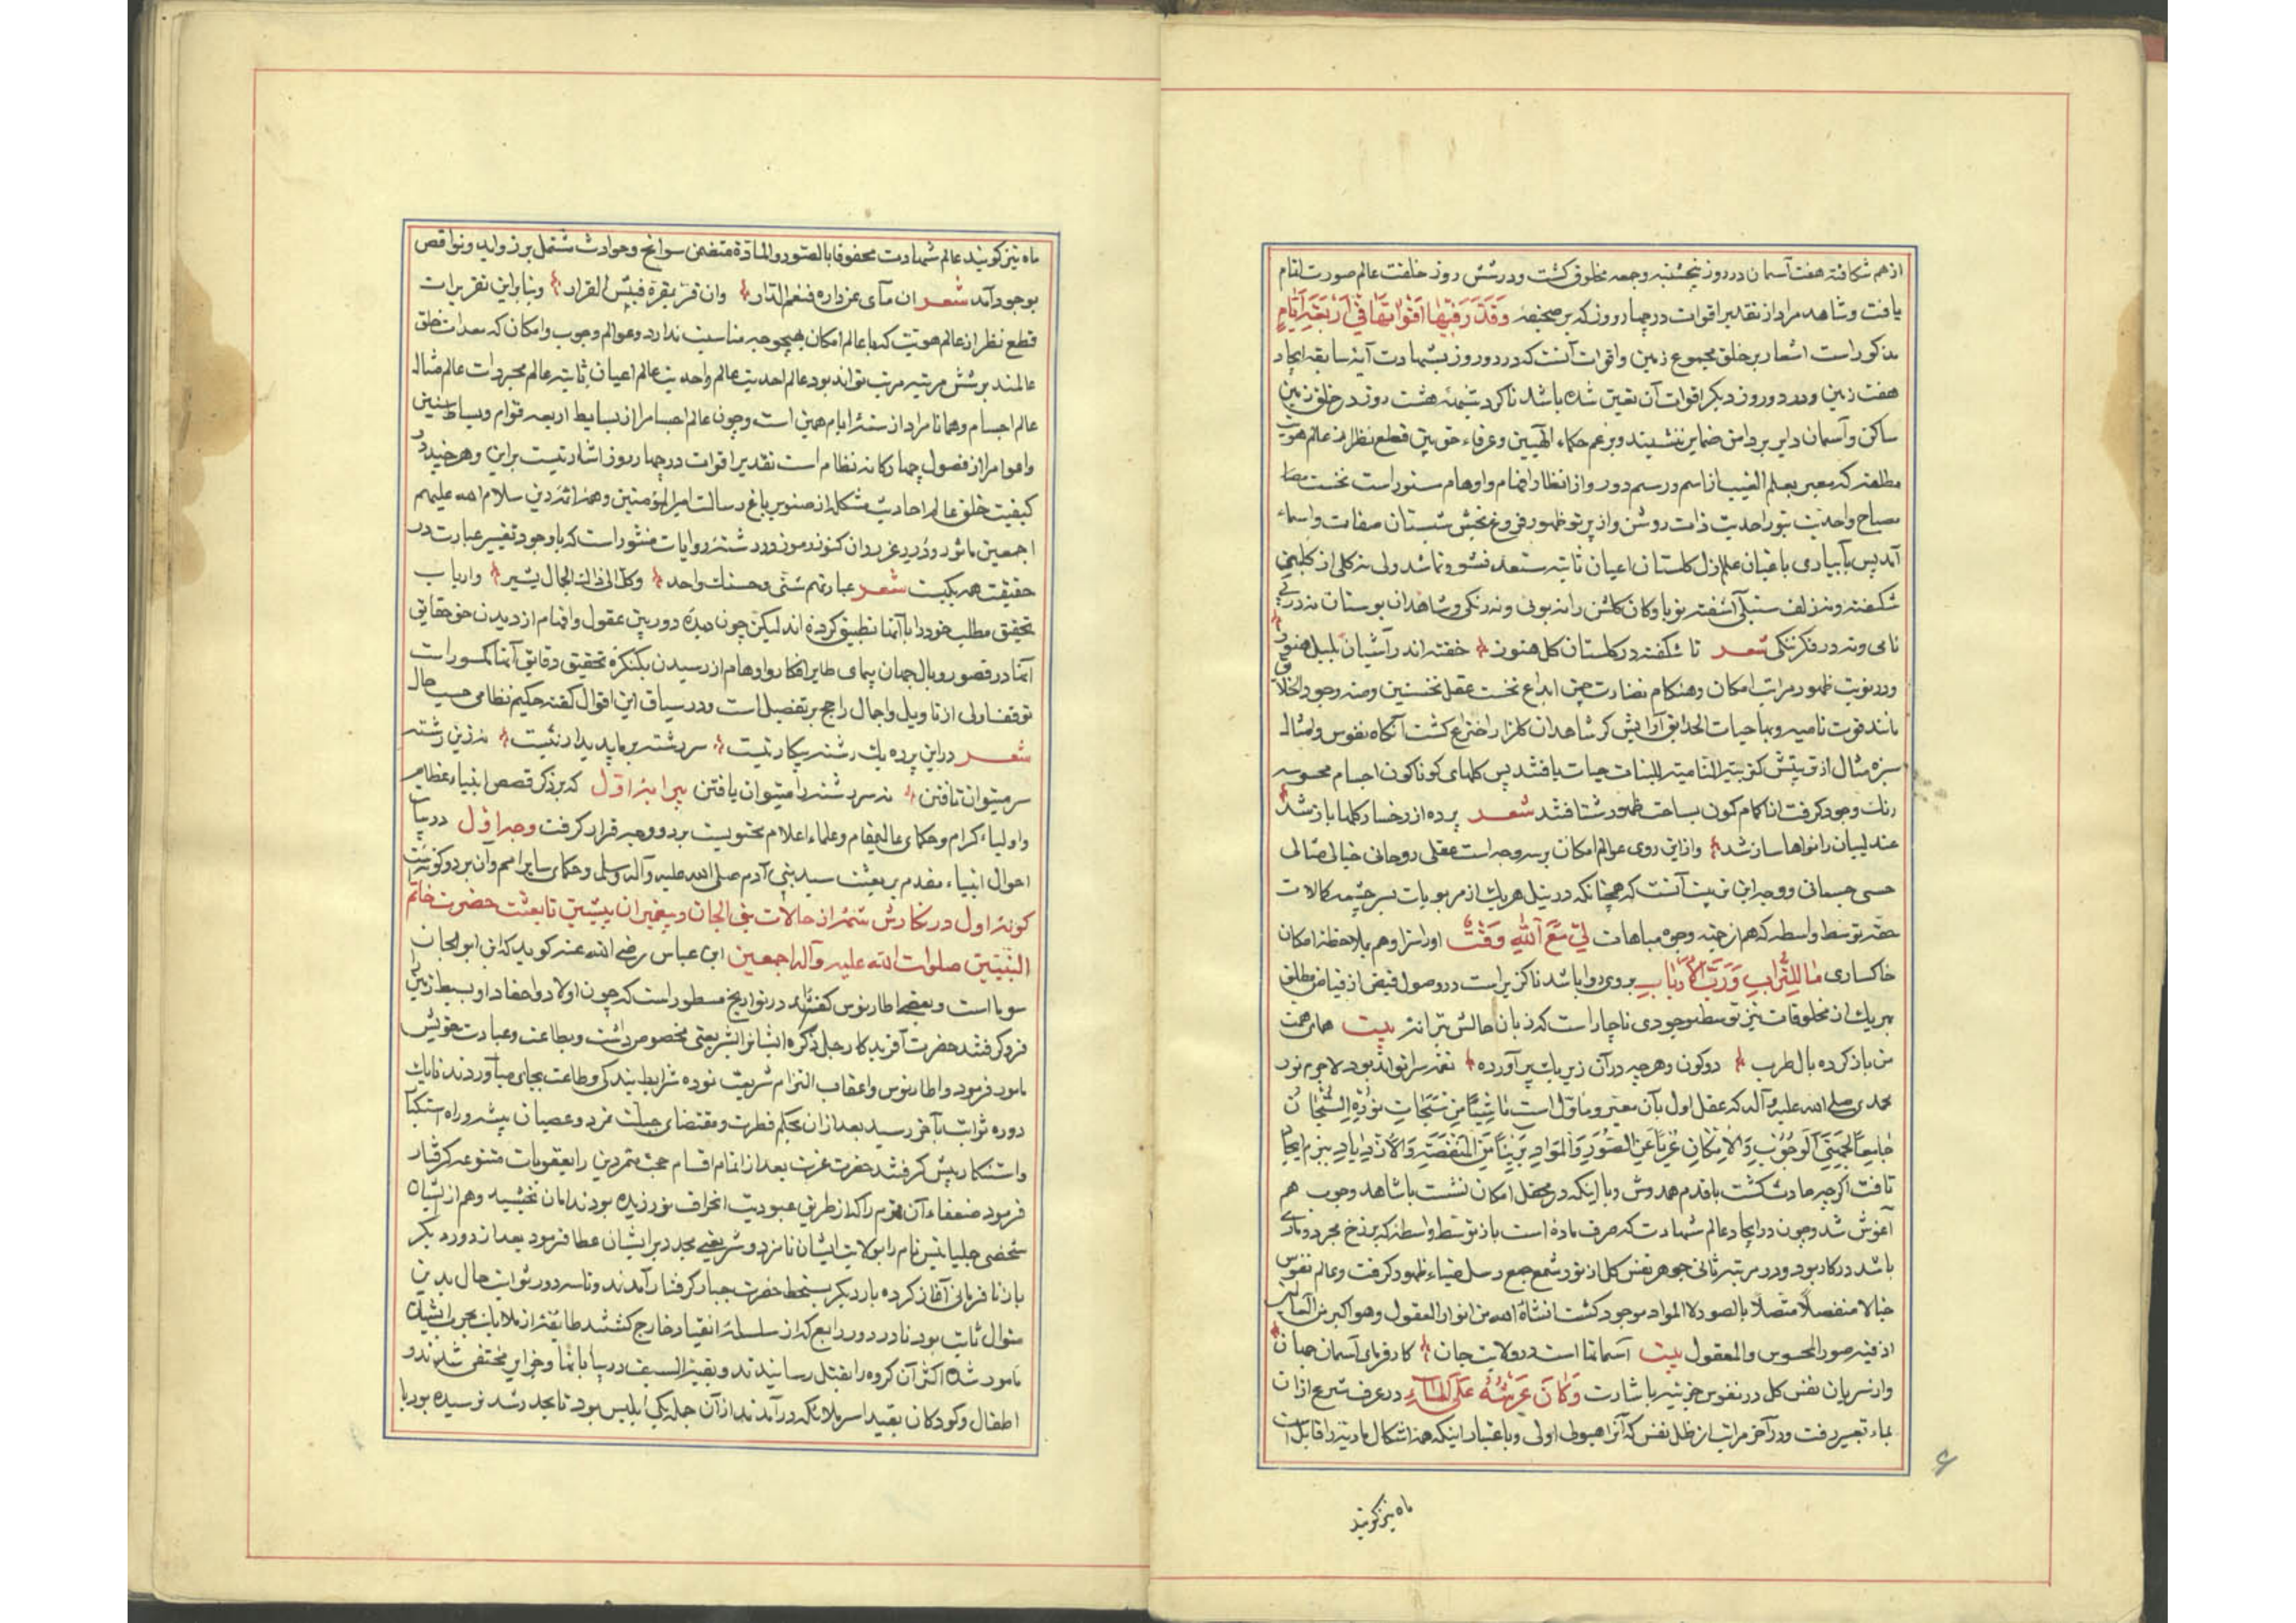 ازهم شکافته هفت آسمان در دو روز پنجشنبه و جمعه مخلوق کشت و در شش روز خلقت عالم صورت اتمام
یافت و شاهد مراد از تقدیر اقوات در چهار روز که بر صحیفه وَقَدَّرَ فِیْهٰا اَقْوٰاتَهٰا فِیْ اَرْبَعَةِ اَیّٰامٍ
مذکور است اشعار بر خلق مجموع زمین و اقوات آنست که در دو روز بشهادت آیهٔ سابقه ایجاد
هفت زمین و در دو روز دیکر اقوات آن تعین شده باشد تا کرد شبههٔ هشت روز در خلق زمین
ساکن و آسمان دایر بر دامن ضمایر ننشیند و بزعم حکماء الهیین و عرفاء حق بین قطع نظر از عالم هویت
مطلقه که معبر بعلم الغیب از اسم و رسم دور و از انظار افهام و اوهام مستور است نخست
مصباح واحدیت بنور احدیت ذات روشن و از پرتو ظهور فروغ بخش شبستان صفات و اسماء
آمد پس بآبیاری باغبان علم ازل کلستان اعیان ثابته مستعد نشو و نما شد ولی نه کلی از کلبنی
شکفته و نه زلف سنبلی آشفته نوباوکان کلشن را نه بوئی و نه رنکی و شاهدان بوستان نه در پی
نامی و نه در فکر ننکی شعر نا شکفته در کلستان کل هنوز خفته اند در آشیان بلبل هنوز
و در نوبت ظهور مراتب امکان و هنکام نضارت چمن ابداع نخست عقل نخستین و منه وجود الخلایق
مانند قوت نامیه و بها حیات الحدایق آرایش کر شاهدان کلزار اختراع کشت آنکاه نفوس و امثال
سبزه مثال از تربیتش کتربیة النامیة للنبات حیات یافتند پس کلهای کوناکون اجسام محسوسه
رنك وجود کرفت از اکمام کمون بساحت ظهور شتافتند شعر پرده از رخسار کلها باز شد
عندلیبان را نواها ساز شد و از این روی عوالم امکان بر سه وجه است عقلی روحانی خیالی مثالی
حسی جسمانی و وجه این ترتیب آنست که همچنانکه در نیل هریك از مربوبات بسرچشمه کمالات
حقه توسط واسطه که هم از جنبه وجوه مباهات لِیْ مَعَ اللّٰهِ وَقْتٌ اورا سزا و هم بملاحظهٔ امکان
خاکساری مٰا لِلتُّرٰابِ وَ رَبِّ الْاَرْبٰابِ بروی روا باشد ناکزیر است در وصول فیض از فیاض مطلق
بهریك از مخلوقات نیز توسط موجودی ناچار است که زبان حالش ترانه بیت همای همت
من باز کرده بال طرب دو کون و هرچه در آن زیر یك پر آورده نغمه سرا تواند بود لاجرم نور
محمدی صلی الله علیه و آله که عقل اول بآن معبر و ماوّل است
جامعًا لجهتی الوجوب و الامکان عریًا عن الصور و المواد بریئًا من النقص و الازدیاد ببزم ایجاد
تافت اکرچه حادث کشت با قدم همدوش و با اینکه در محفل امکان نشست با شاهد وجوب هم
آغوش شد و چون در ایجاد عالم شهادت که صرف ماده است باز توسط واسطه که برزخ مجرد و مادی
باشد در کار بود و در مرتبه ثانی جوهر نفس کل از نور شمع جمع رسل ضیاء ظهور کرفت و عالم نفوس
خیالا منفصلًا متصلًا بالصور لا المواد موجود کشت انشاهٔ الله من انوار العقول و هو اکبر من العالمین
اذ فیه صور المحسوس و المعقول بیت آسمانها است در ولایت جان کار فرمای آسمان جهان
و از سریان نفس کل در نفوس جزئیه باشارت وَکٰانَ عَرْشُهُ عَلَی الْمٰاءِ در عرف شرع از آن
بماء تعبیر رفت و در آخر مراتب از ظل نفس که آنرا هبوط اولی و باعتبار اینکه همه اشکال مادیه را قابل است
۶
ماه نیز کویند
ماه نیز کویند عالم شهادت محفوفا بالصور و المادّة متضمن سوانح و حوادث مشتمل بر زواید و نواقص
بوجود آمد شعر ان مآی عن داره فنعم الدّار وان قرّ بمقرّه فبئس القرار و بنا بر این تقریرات
قطع نظر از عالم هویت که با عالم امکان بهیچوجه مناسبت ندارد و عوالم وجوب و امکان که مصداق خلق
عالمند بر شش مرتبه مرتب تواند بود عالم احدیت عالم واحدیت عالم اعیان ثابته عالم مجردات عالم مثال
عالم اجسام و همانا مراد از ستهٔ ایام همین است و چون عالم اجسام را از بسایط اربعه قوام و بساط سنین
و اعوام را از فصول چهارکانه نظام است تقدیر اقوات در چهار روز اشارتیست بر این و هرچند در
کیفیت خلق عالم احادیث مشکله از صنوبر باغ رسالت امیر المؤمنین و همه ائمهٔ دین سلام الله علیهم
اجمعین ماثور و دُرر و غرر و ان کنوز رموز در رشتهٔ روایات منثور است که با وجود تغییر عبارت در
حقیقت همه یکیست شعر عباراتهم شتّی و حسنك واحد و کلّ الی ذاك الجمال یشیر و ارباب
تحقیق مطلب خود را با آنها تطبیق کرده اند لیکن چون دیدهٔ دوربین عقول و افهام از دیدن حق حقایق
آنها در قصور و بال جهان پیمای طایر افکار و اوهام از رسیدن بکنکرهٔ تحقیق دقایق آنها مکسور است
توقف اولی از تاویل و اجمال راجح بر تفصیل است و در سیاق این اقوال کفتهٔ حکیم نظامی حسب حال
شعر در این پرده یك رشته بیکار نیست سر رشته بر ما پدیدار نیست نه زین رشته
سر میتوان تافتن نه سر رشته را میتوان یافتن پیرایهٔ اول که بر ذکر قصص انبیاء عظام
و اولیاء کرام و حکمای عالیمقام و علماء اعلام محتویست بر دو وجه قرار کرفت وجه اول در بیان
احوال انبیاء مقدم بر بعثت سید بنی آدم صلی الله علیه و آله وسلم و حکمای سایر امم و آن بر دو کونه است
کونهٔ اول در نکارش شمهٔ از حالات بنی الجان و پیغمبران پیشین تا بعثت حضرت خاتم
النبیین صلوات الله علیه و آله اجمعین ابن عباس رضی الله عنه کوید که ابن ابو الجان
سوما است و بعضی اطارنوس کفته‌اند در تواریخ مسطور است که چون اولاد و احفاد او بسیط زمین
فرو کرفتند حضرت آفریدکار جل ذکره ایشانرا بشریعتی مخصوص داشت و بطاعت و عبادت خویش
مامور فرمود و اطارنوس و اعقاب التزام شریعت نموده شرایط بندکی و طاعت بجای می‌آوردند تا یك
دوره ثوابت بآخر رسید بعد از آن بحکم فطرت و مقتضای جبلت تمرد و عصیان پیشه و راه استکبار
و استنکار پیش کرفتند حضرت عزت بعد از اتمام اقسام حجت متمردین را بعقوبات متنوعه کرفتار
فرمود ضعفاء آن قوم را که از طریق عبودیت انحراف نورزیده بودند امان بخشید و هم از ایشان
شخصی جلیانیس نام را بولایت ایشان نامزد و شریعتی مجدد بر ایشان عطا فرمود بعد از دور دیکر
باز نافرمانی آغاز کرده بار دیکر بسخط حضرت جبار کرفتار آمدند و تا سه دور ثوابت حال بدین
منوال ثابت بود تا در دور رابع که از سلسلهٔ انقیاد خارج کشتند طایفهٔ از ملایك بحرب ایشان
مامور شده اکثر آن کروه را بقتل رسانیدند و بقیة السیف در بیابانها و جزایر مختفی شدند و
اطفال و کودکان بقید اسر ملائکه درآمدند از آن جمله یکی ابلیس بود تا بحد رشد نرسیده بود با